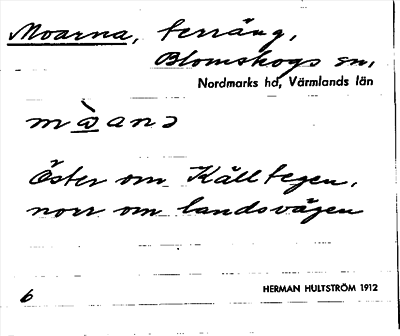 Moarna, terräng,
Blomskogs sn,
Nordmarks hd, Värmlands län
Öster om Källtegen,
norr om landsvägen
6
HERMAN HULTSTRÖM 1912